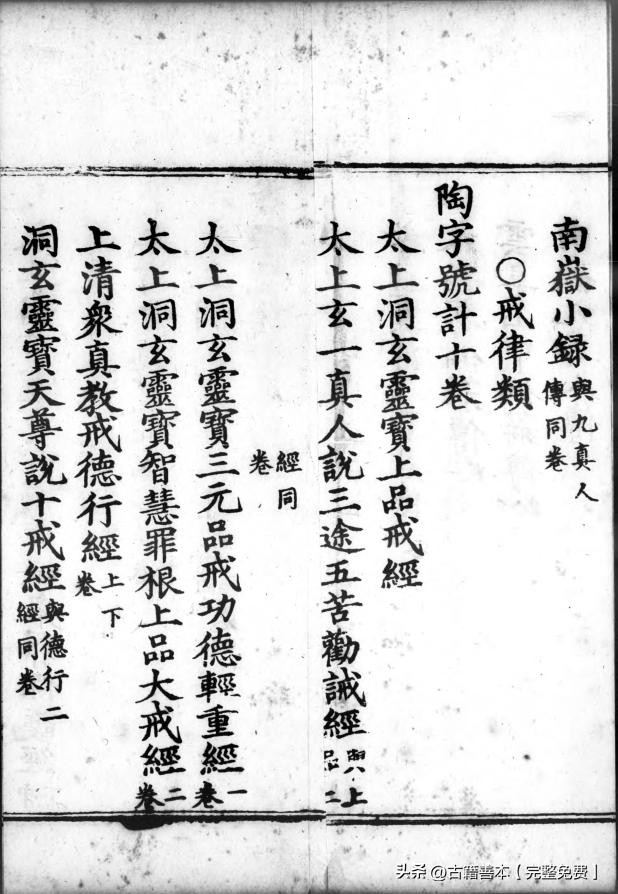 南嶽小録與九真人傳同卷
○戒律類
陶字號計十卷
太上洞玄靈寶上品戒經
太上玄一真人說三途五苦勸誡經與上品二
經同卷
太上洞玄靈寶三元品戒功德輕重經一卷
太上洞玄靈寶智慧罪根上品大戒經二卷
上清衆真教戒德行經上下卷
洞玄靈寶天尊說十戒經與德行二經同卷
头条@古籍善本【完整免费】